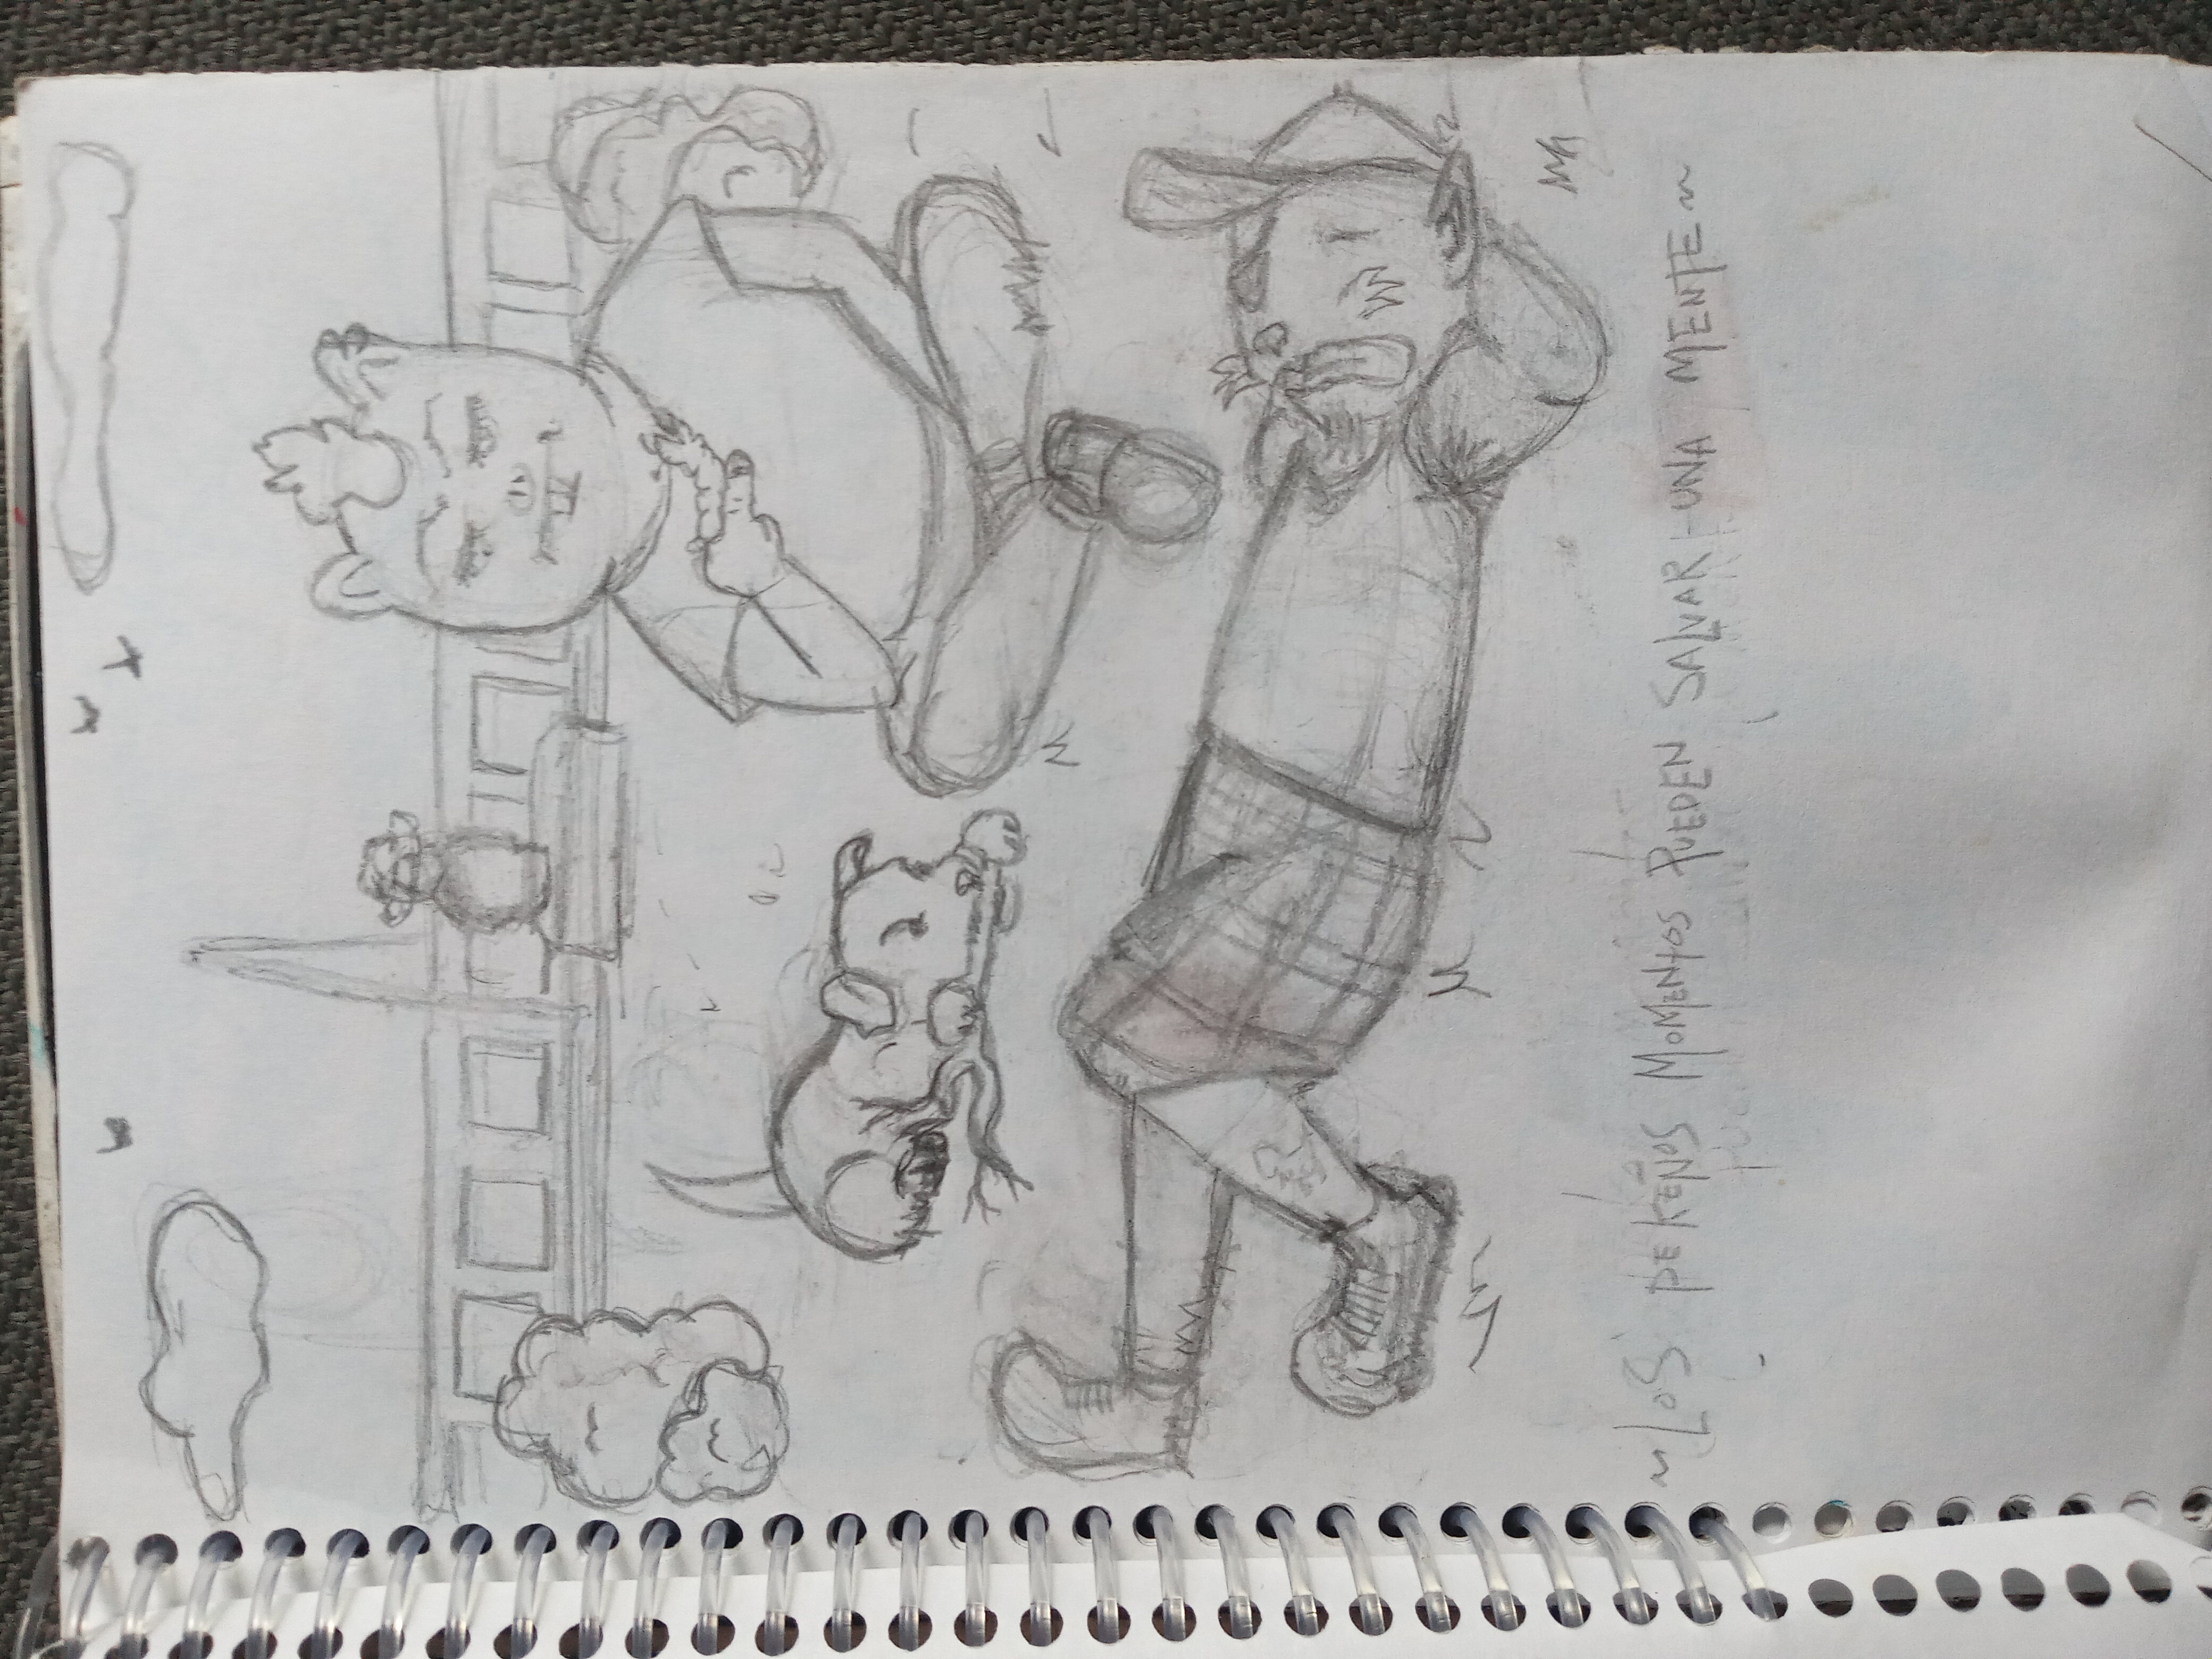 ~ LOS PEKEÑOS MOMENTOS PUEDEN SALVAR UNA MENTE ~